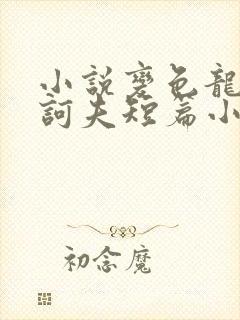 小說變色龍
訶夫短篇小
初念魔